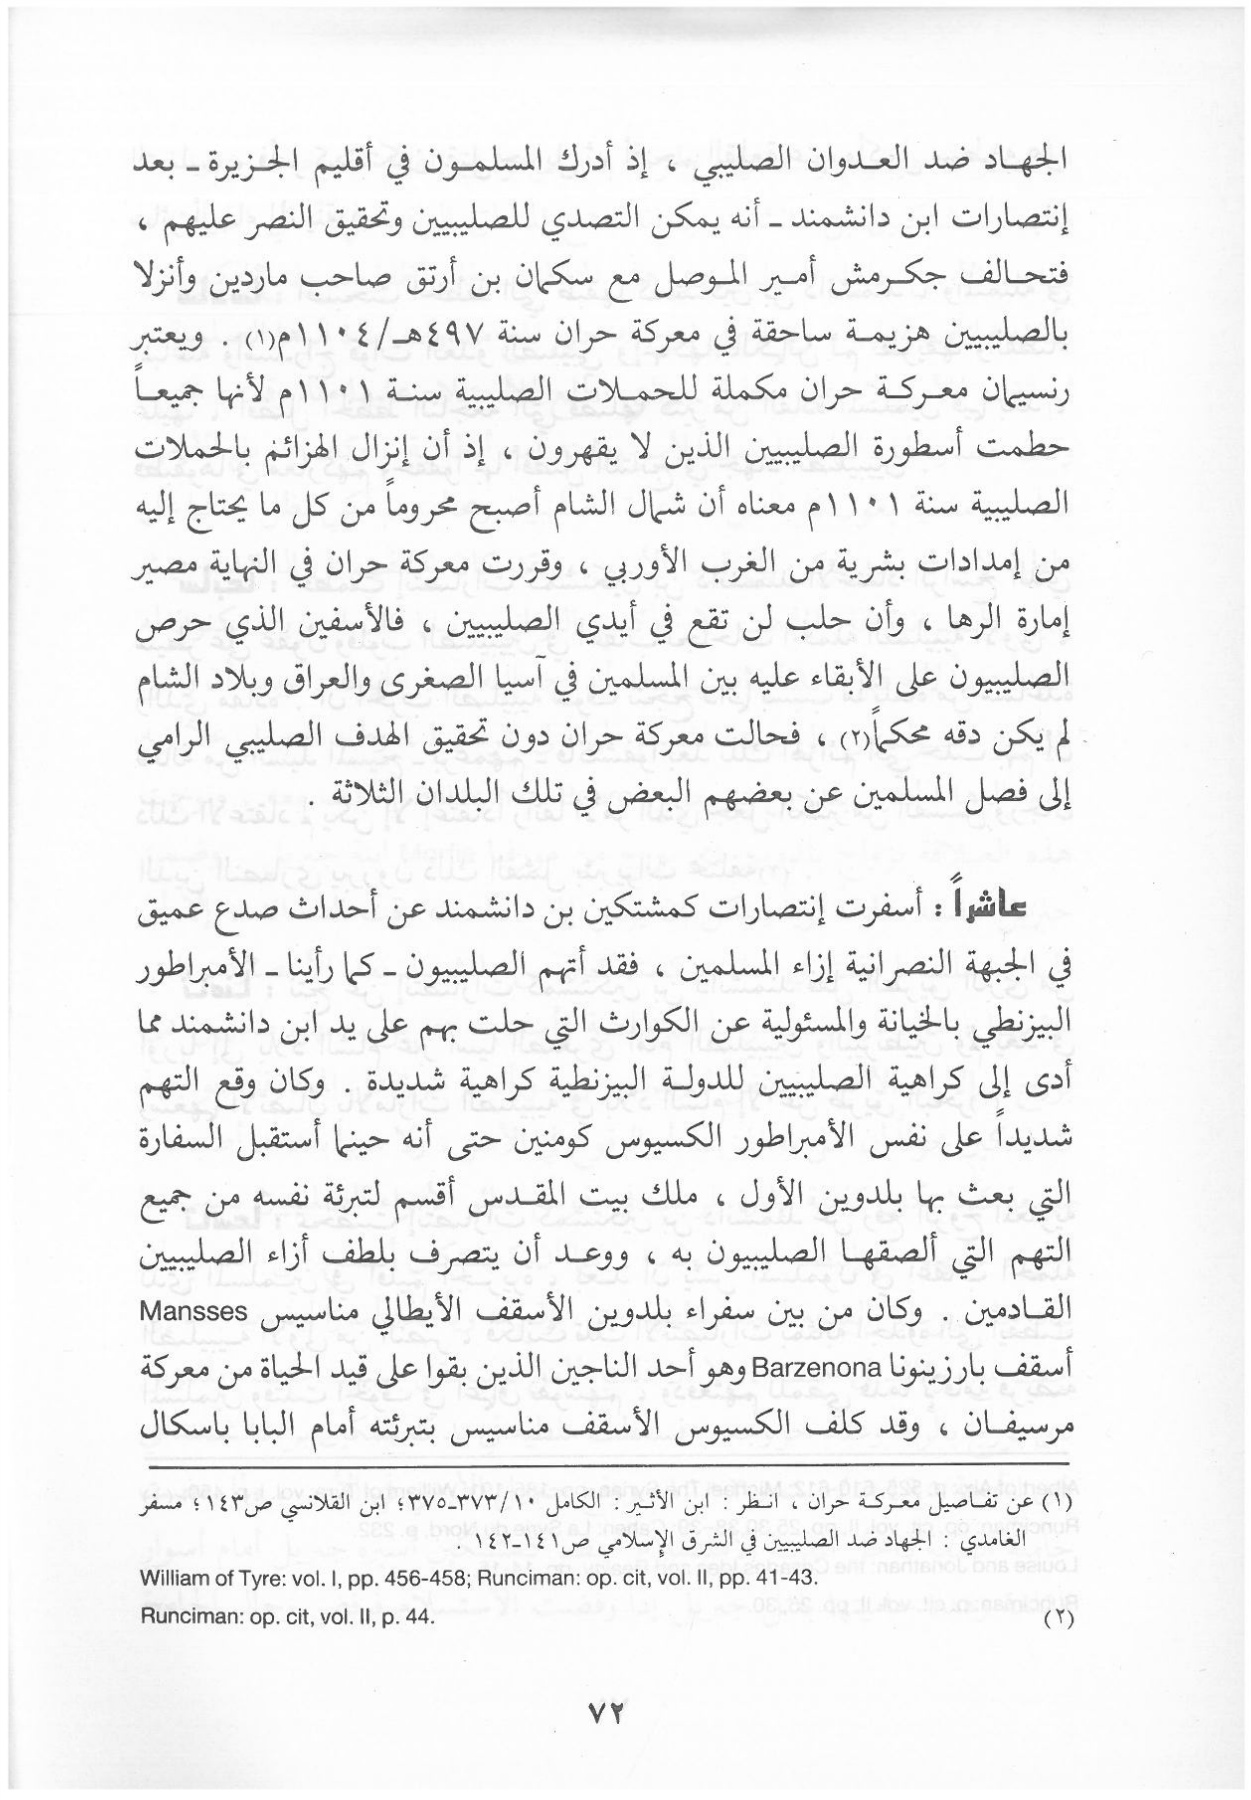 الجهاد ضد العدوان الصليبي ، إذ أدرك المسلمون في أقليم الجزيرة ـ بعد
إنتصارات ابن دانشمند ـ أنه يمكن التصدي للصليبيين وتحقيق النصر عليهم ،
فتحالف جكرمش أمير الموصل مع سكمان بن أرتق صاحب ماردين وأنزلا
بالصليبيين هزيمة ساحقة في معركة حران سنة ٤٩٧هـ/١١٠٤م(١) . ويعتبر
رنسيمان معركة حران مكملة للحملات الصليبية سنة ١١٠١م لأنها جميعاً
حطمت أسطورة الصليبيين الذين لا يقهرون ، إذ أن إنزال الهزائم بالحملات
الصليبية سنة ١١٠١م معناه أن شمال الشام أصبح محروماً من كل ما يحتاج إليه
من إمدادات بشرية من الغرب الأوربي ، وقررت معركة حران في النهاية مصير
إمارة الرها ، وأن حلب لن تقع في أيدي الصليبيين ، فالأسفين الذي حرص
الصليبيون على الأبقاء عليه بين المسلمين في آسيا الصغرى والعراق وبلاد الشام
لم يكن دقه محكماً(٢) ، فحالت معركة حران دون تحقيق الهدف الصليبي الرامي
إلى فصل المسلمين عن بعضهم البعض في تلك البلدان الثلاثة .
عاشراً : أسفرت إنتصارات كمشتكين بن دانشمند عن أحداث صدع عميق
في الجبهة النصرانية إزاء المسلمين ، فقد أتهم الصليبيون ـ كما رأينا ـ الأمبراطور
البيزنطي بالخيانة والمسئولية عن الكوارث التي حلت بهم على يد ابن دانشمند مما
أدى إلى كراهية الصليبيين للدولة البيزنطية كراهية شديدة . وكان وقع التهم
شديداً على نفس الأمبراطور الكسيوس كومنين حتى أنه حينما أستقبل السفارة
التي بعث بها بلدوين الأول ، ملك بيت المقدس أقسم لتبرئة نفسه من جميع
التهم التي ألصقها الصليبيون به ، ووعد أن يتصرف بلطف أزاء الصليبيين
القادمين . وكان من بين سفراء بلدوين الأسقف الأيطالي مناسيس Mansses
أسقف بارزينونا Barzenona وهو أحد الناجين الذين بقوا على قيد الحياة من معركة
مرسيفان ، وقد كلف الكسيوس الأسقف مناسيس بتبرئته أمام البابا باسكال
(١) عن تفاصيل معركة حران ، انظر : ابن الأثير : الكامل ١٠/٣٧٣ـ٣٧٥؛ ابن القلانسي ص١٤٣؛ مسفر
الغامدي : الجهاد ضد الصليبيين في الشرق الإسلامي ص١٤١ـ١٤٢ .
William of Tyre: vol. I, pp. 456-458; Runciman: op. cit, vol. II, pp. 41-43.
(٢) Runciman: op. cit, vol. II, p. 44.
٧٢